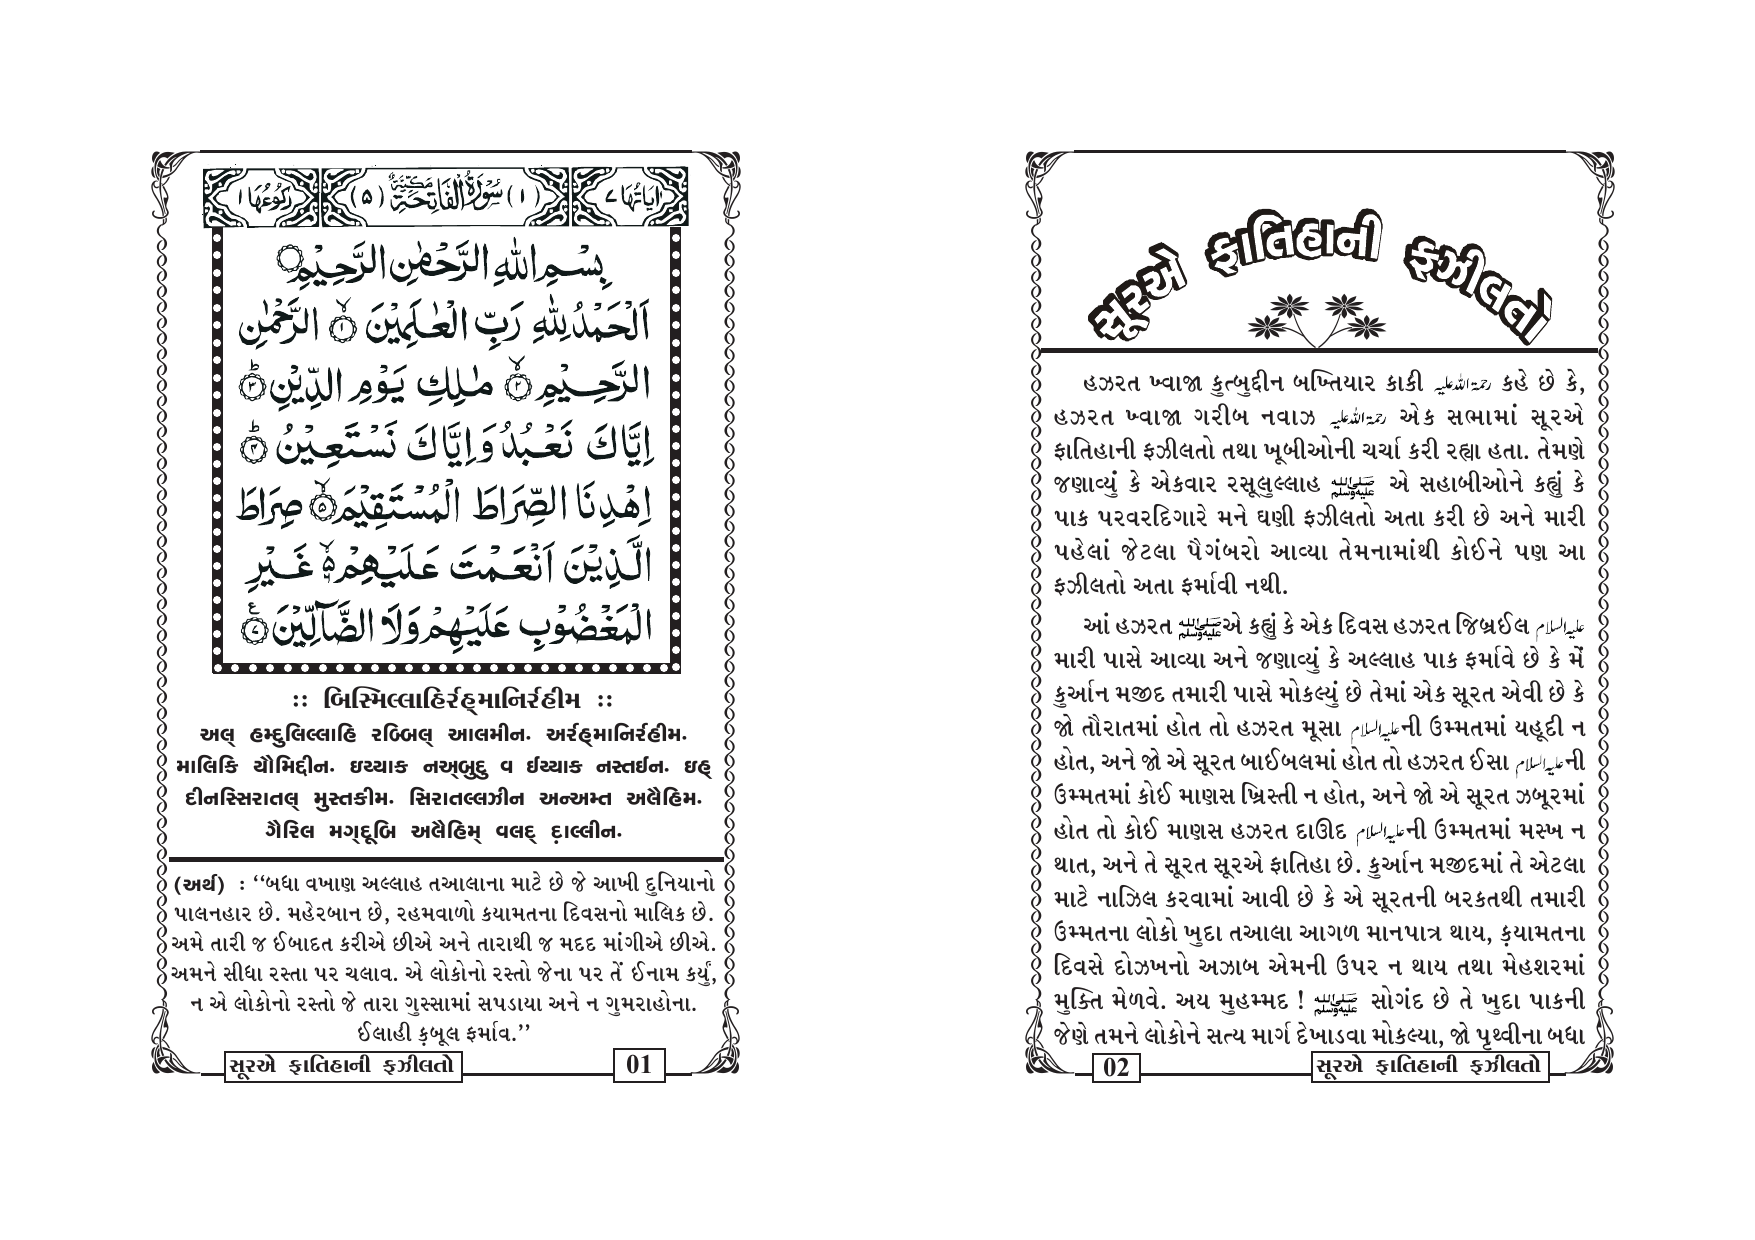 اٰيَاتُهَا ٧
(١) سُوْرَةُ الْفَاتِحَةِ مَكِّيَّةٌ (٥)
رُكُوْعُهَا ١
بِسْمِ اللهِ الرَّحْمٰنِ الرَّحِيْمِ
اَلْحَمْدُ لِلّٰهِ رَبِّ الْعٰلَمِيْنَ ١ الرَّحْمٰنِ
الرَّحِيْمِ ٢ مٰلِكِ يَوْمِ الدِّيْنِ ٣
اِيَّاكَ نَعْبُدُ وَاِيَّاكَ نَسْتَعِيْنُ ٤
اِهْدِنَا الصِّرَاطَ الْمُسْتَقِيْمَ ٥ صِرَاطَ
الَّذِيْنَ اَنْعَمْتَ عَلَيْهِمْ ٦ غَيْرِ
الْمَغْضُوْبِ عَلَيْهِمْ وَلَا الضَّآلِّيْنَ ٧
:: બિસ્મિલ્લાહિર્રહ્‌માનિર્રહીમ ::
અલ્ હમ્દુલિલ્લાહિ રબ્બિલ્ આલમીન. અર્રહ્‌માનિર્રહીમ.
માલિકિ યૌમિદ્દીન. ઇય્યાક નઅ્બુદુ વ ઈય્યાક નસ્તઈન. ઇહ્
દીનસ્સિરાતલ્ મુસ્તકીમ. સિરાતલ્લઝીન અન્અમ્ત અલૈહિમ.
ગૈરિલ મગ્‌દૂબિ અલૈહિમ્ વલદ્ દ઼ાલ્લીન.
(અર્થ) : ‘‘બધા વખાણ અલ્લાહ તઆલાના માટે છે જે આખી દુનિયાનો
પાલનહાર છે. મહેરબાન છે, રહમવાળો કયામતના દિવસનો માલિક છે.
અમે તારી જ ઈબાદત કરીએ છીએ અને તારાથી જ મદદ માંગીએ છીએ.
અમને સીધા રસ્તા પર ચલાવ. એ લોકોનો રસ્તો જેના પર તેં ઈનામ કર્યું,
ન એ લોકોનો રસ્તો જે તારા ગુસ્સામાં સપડાયા અને ન ગુમરાહોના.
ઈલાહી ક઼બૂલ ફર્માવ.’’
સૂરએ ફાતિહાની ફઝીલતો
01
સૂરએ ફાતિહાની ફઝીલતો
હઝરત ખ્વાજા કુત્બુદ્દીન બખ્તિયાર કાકી رحمۃ اللہ علیہ કહે છે કે,
હઝરત ખ્વાજા ગરીબ નવાઝ رحمۃ اللہ علیہ એક સભામાં સૂરએ
ફાતિહાની ફઝીલતો તથા ખૂબીઓની ચર્ચા કરી રહ્યા હતા. તેમણે
જણાવ્યું કે એકવાર રસૂલુલ્લાહ ﷺ એ સહાબીઓને કહ્યું કે
પાક પરવરદિગારે મને ઘણી ફઝીલતો અતા કરી છે અને મારી
પહેલાં જેટલા પૈગંબરો આવ્યા તેમનામાંથી કોઈને પણ આ
ફઝીલતો અતા ફર્માવી નથી.
આં હઝરત ﷺએ કહ્યું કે એક દિવસ હઝરત જિબ્રઈલ علیہ السلام
મારી પાસે આવ્યા અને જણાવ્યું કે અલ્લાહ પાક ફર્માવે છે કે મેં
કુર્આન મજીદ તમારી પાસે મોકલ્યું છે તેમાં એક સૂરત એવી છે કે
જો તૌરાતમાં હોત તો હઝરત મૂસા علیہ السلامની ઉમ્મતમાં યહૂદી ન
હોત, અને જો એ સૂરત બાઈબલમાં હોત તો હઝરત ઈસા علیہ السلامની
ઉમ્મતમાં કોઈ માણસ ખ્રિસ્તી ન હોત, અને જો એ સૂરત ઝબૂરમાં
હોત તો કોઈ માણસ હઝરત દાઊદ علیہ السلامની ઉમ્મતમાં મસ્ખ ન
થાત, અને તે સૂરત સૂરએ ફાતિહા છે. કુર્આન મજીદમાં તે એટલા
માટે નાઝિલ કરવામાં આવી છે કે એ સૂરતની બરકતથી તમારી
ઉમ્મતના લોકો ખુદા તઆલા આગળ માનપાત્ર થાય, ક઼યામતના
દિવસે દોઝખનો અઝાબ એમની ઉપર ન થાય તથા મેહશરમાં
મુક્તિ મેળવે. અય મુહમ્મદ ! ﷺ સોગંદ છે તે ખુદા પાકની
જેણે તમને લોકોને સત્ય માર્ગ દેખાડવા મોકલ્યા, જો પૃથ્વીના બધા
02
સૂરએ ફાતિહાની ફઝીલતો